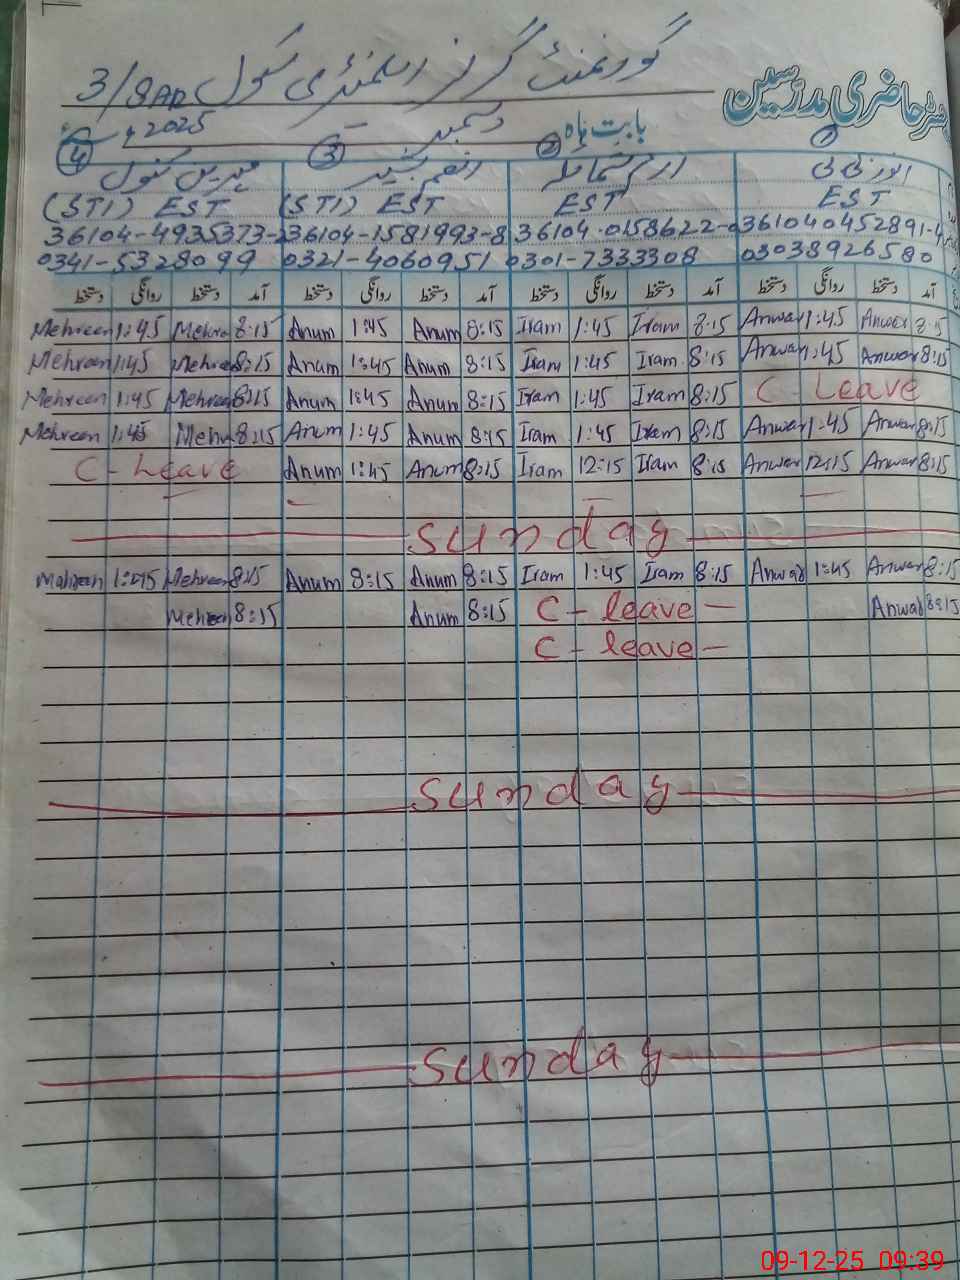 گورنمنٹ گرلز ایلمنٹری سکول 3/8AR
رجسٹر حاضری مدرسین
بابت ماہ دسمبر 2025ء
① ② ③ ④
انور بی بی ارم شمائلہ انعم مہرین کنول
EST EST (STI) EST (STI) EST
36104-4935373- 36104-1581993-8 36104-0158622- 361040452891-4
0341-5328099 0321-4060951 0301-7333308 03038926580
آمد دستخط روانگی دستخط آمد دستخط روانگی دستخط آمد دستخط روانگی دستخط آمد دستخط روانگی دستخط
Mehreen 1:45 Mehre 8:15 Anum 1:45 Anum 8:15 Iram 1:45 Iram 8:15 Anwar 1:45 Anwar 8:15
Mehreen 1:45 Mehreen 8:15 Anum 1:45 Anum 8:15 Iram 1:45 Iram 8:15 Anwar 1:45 Anwar 8:15
Mehreen 1:45 Mehreen 8:15 Anum 1:45 Anum 8:15 Iram 1:45 Iram 8:15 C - Leave
Mehreen 1:45 Mehr 8:15 Anum 1:45 Anum 8:15 Iram 1:45 Iram 8:15 Anwar 1:45 Anwar 8:15
C - Leave Anum 1:45 Anum 8:15 Iram 12:15 Iram 8:15 Anwar 12:15 Anwar 8:15
Sunday
Mehreen 1:45 Mehreen 8:15 Anum 8:15 Anum 8:15 Iram 1:45 Iram 8:15 Anwar 1:45 Anwar 8:15
Mehreen 8:15 Anum 8:15 C - leave - Anwar 8:15
C - leave -
Sunday
Sunday
09-12-25 09:39